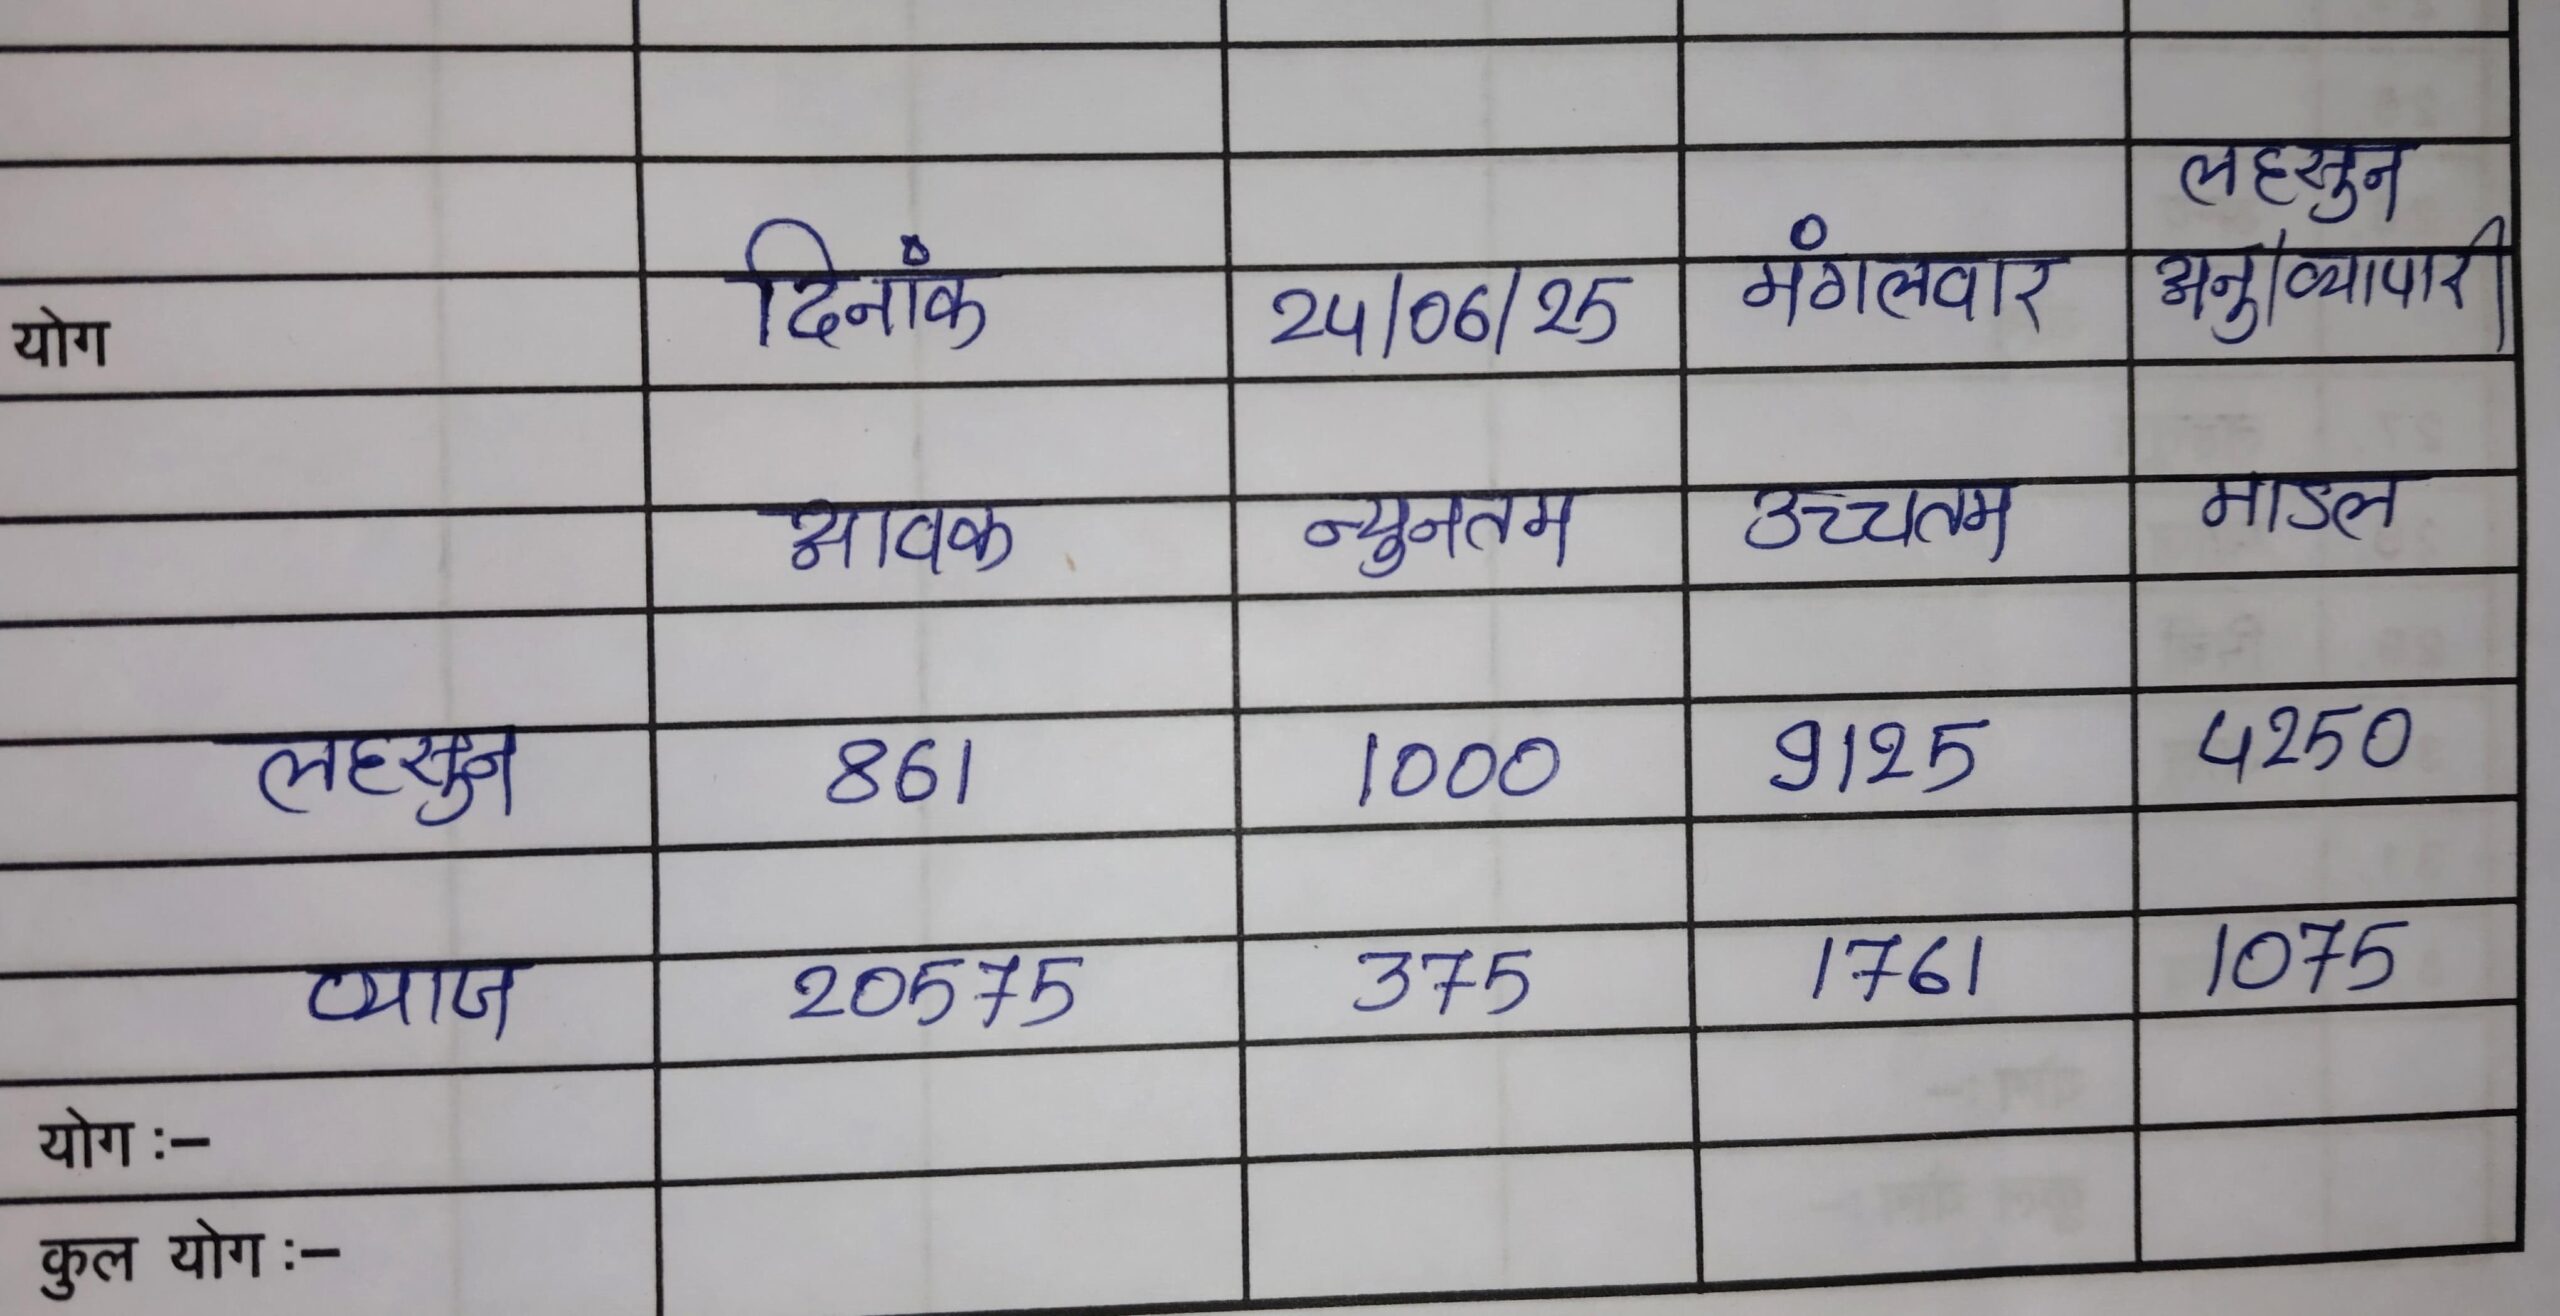 लहसुन
योग दिनांक 24/06/25 मंगलवार अनु/व्यापारी
आवक न्युनतम उच्चतम माडल
लहसुन 861 1000 9125 4250
प्याज 20575 375 1761 1075
योग :–
कुल योग :–